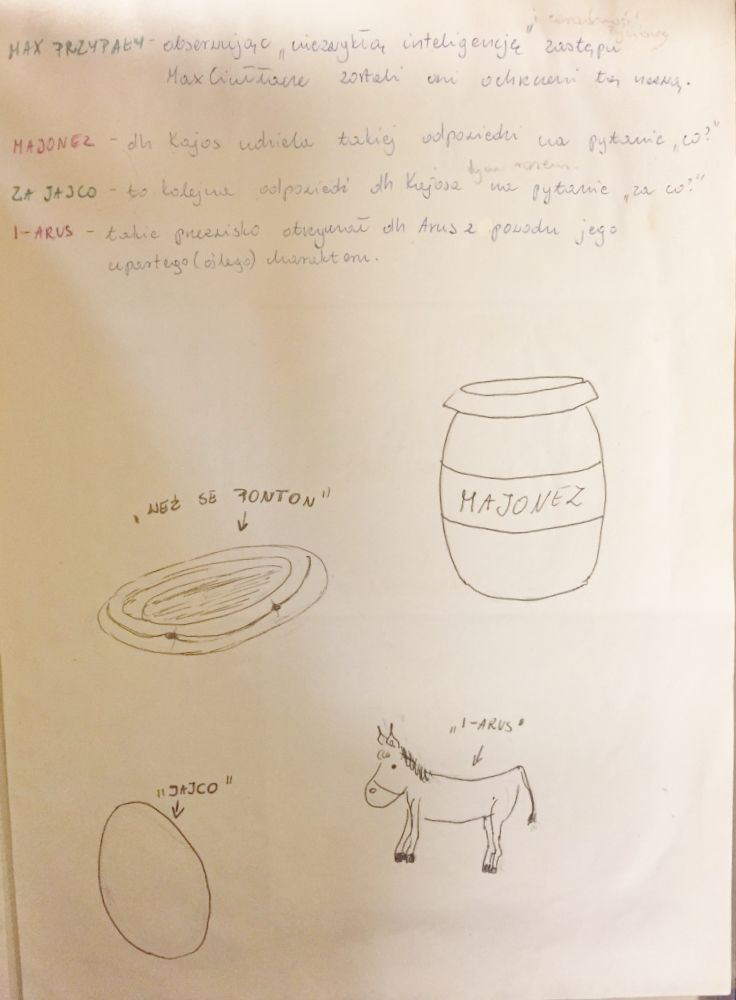 i zaradność
życiową
MAX PRZYPAŁY - obserwując „niezwykłą inteligencję" zastępu
Max Ciułłace zostali oni ochrzczeni tą nazwą.
MAJONEZ - dh Kajos udziela takiej odpowiedzi na pytanie „co?"
ZA JAJCO - to kolejna odpowiedź dh Kajosa tym razem na pytanie „za co?"
I-ARUS - takie przezwisko otrzymał dh Arus z powodu jego
upartego (oślego) charakteru.
„WEŹ SE PONTON"
MAJONEZ
„I-ARUS"
"JAJCO"